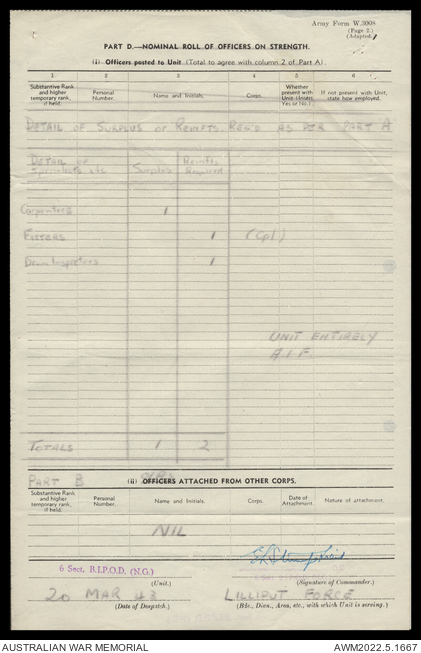 Army Form W.3008
(Page 2.)
(Adapted.)
PART D.—NOMINAL ROLL OF OFFICERS ON STRENGTH.
(i) Officers posted to Unit (Total to agree with column 2 of Part A).
1 2 3 4 5 6
Substantive Rank and higher temporary rank, if held. Personal Number. Name and Initials. Corps. Whether present with Unit (State Yes or No.) If not present with Unit, state how employed.
DETAIL OF SURPLUS OR REINFTS. REQ'D AS PER PART A
DETAIL OF Specialists etc Surplus Reinfts Required
Carpenters 1
FITTERS 1 (Cpl)
1
UNIT ENTIRELY
A.I.F.
TOTALS 1 2
PART B
(ii) OFFICERS ATTACHED FROM OTHER CORPS.
Substantive Rank and higher temporary rank, if held. Personal Number. Name and Initials. Corps. Date of Attachment. Nature of attachment.
NIL
6 Sect. B.I.P.O.D. (N.G.)
(Unit.) (Signature of Commander.)
20 MAR 43 LILLIPUT FORCE
(Date of Despatch.) (Bde., Divn., Area, etc., with which Unit is serving.)
AUSTRALIAN WAR MEMORIAL AWM2022.5.1667